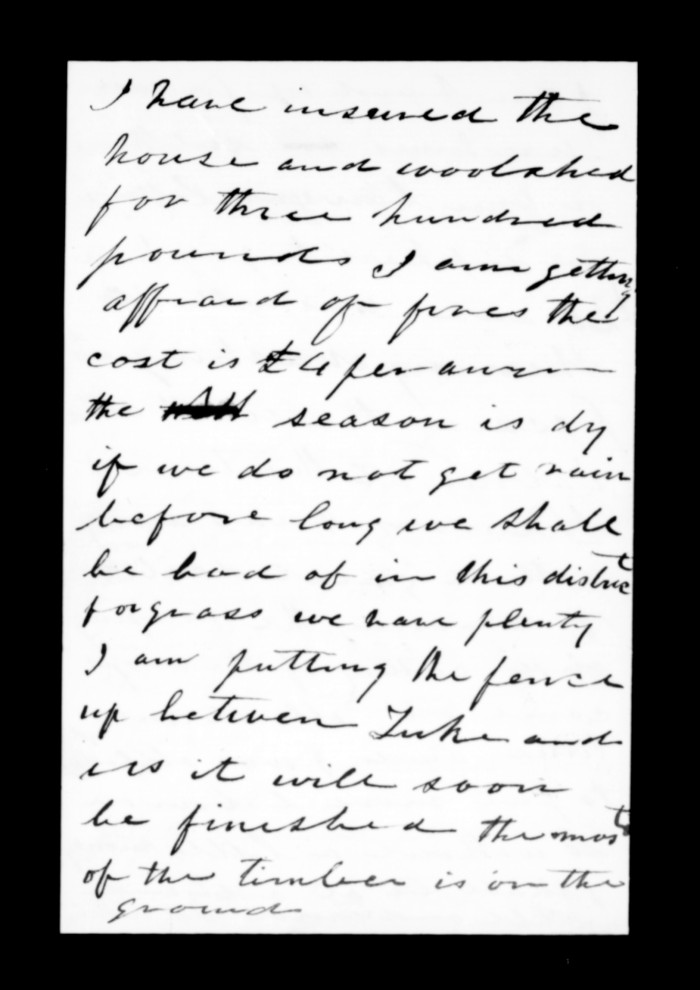 I have insured the
house and woolshed
for three hundred
pounds I am getting
affraid of fires the
cost is £4 per anum
the season is dy
if we do not get rain
before long we shall
be bad of in this district
for grass we have plenty
I am putting the fence
up between Luke and
us it will soon
be finished the most
of the timber is on the
ground